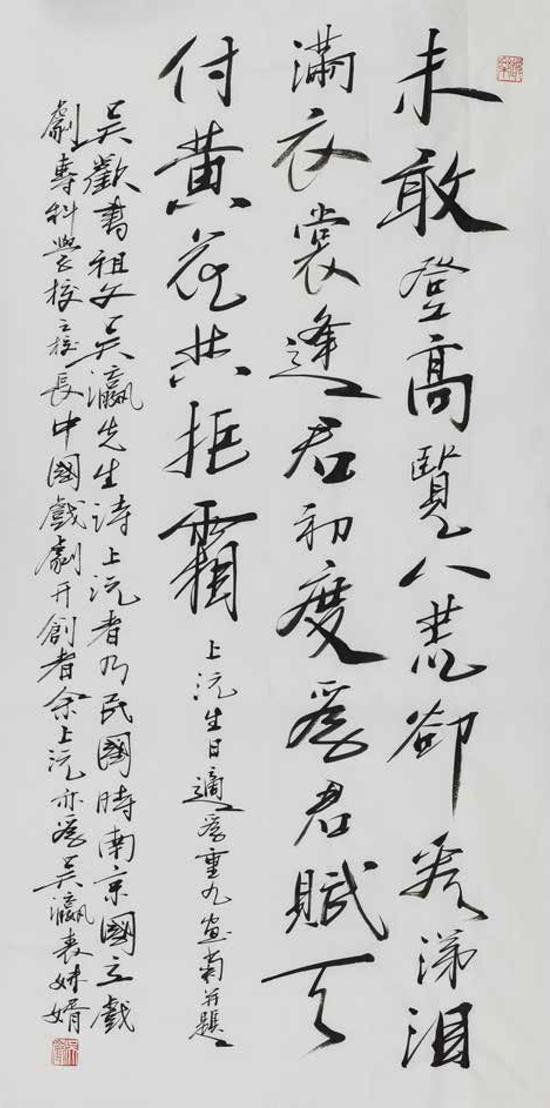 未敢登高覽八荒卻看涕泪
滿衣裳逢君初度爲君賦天
付黄花共拒霜
上沅生日適爲重九畫菊并題
吳歡書祖父吳瀛先生詩上沅者乃民國時南京國立戲
劇專科學校之校長中國戲劇开創者余上沅亦爲吳瀛表妹婿